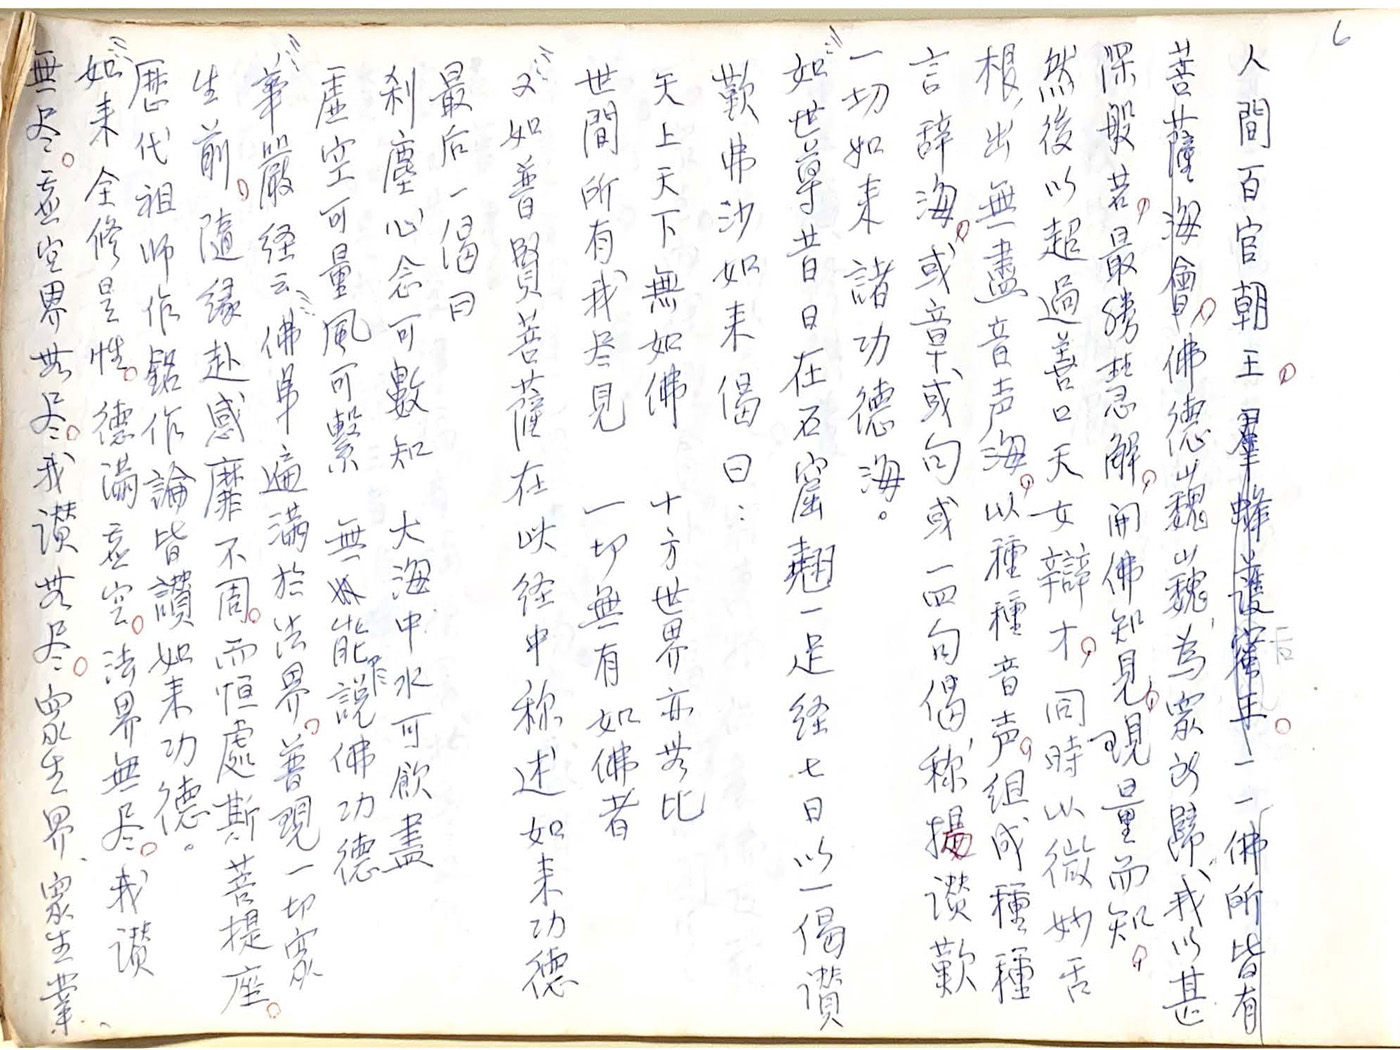 6
人間百官朝王，羣蜂護蜜王。一一佛所皆有
后
菩薩海會，佛德巍巍，為眾所歸，我以甚
深般若，最勝智慧解，開佛知見，現量而知，
然後以超過善口天女辯才，同時以微妙舌
根，出無盡音声海，以種種音声，組成種種
言辞海，或章或句或一四句偈，称揚讃歎
一切如来諸功德海。
如世尊昔日在石窟翹一足経七日以一偈讃
歎弗沙如来偈曰：
天上天下無如佛　十方世界亦無比
世間所有我尽見　一切無有如佛者
又如普賢菩薩在此経中称述如来功德
最后一偈曰
刹塵心念可數知　大海中水可飲盡
虛空可量風可繫　無能盡說佛功德
華嚴経云：佛身遍滿於法界。普現一切眾
生前，隨緣赴感靡不周。而恒處斯菩提座。
歷代祖师作銘作論皆讃如来功德。
如来全修是性。德滿虛空。法界無尽。我讃
無尽。虛空界無尽。我讃無尽。眾生界、眾生業、